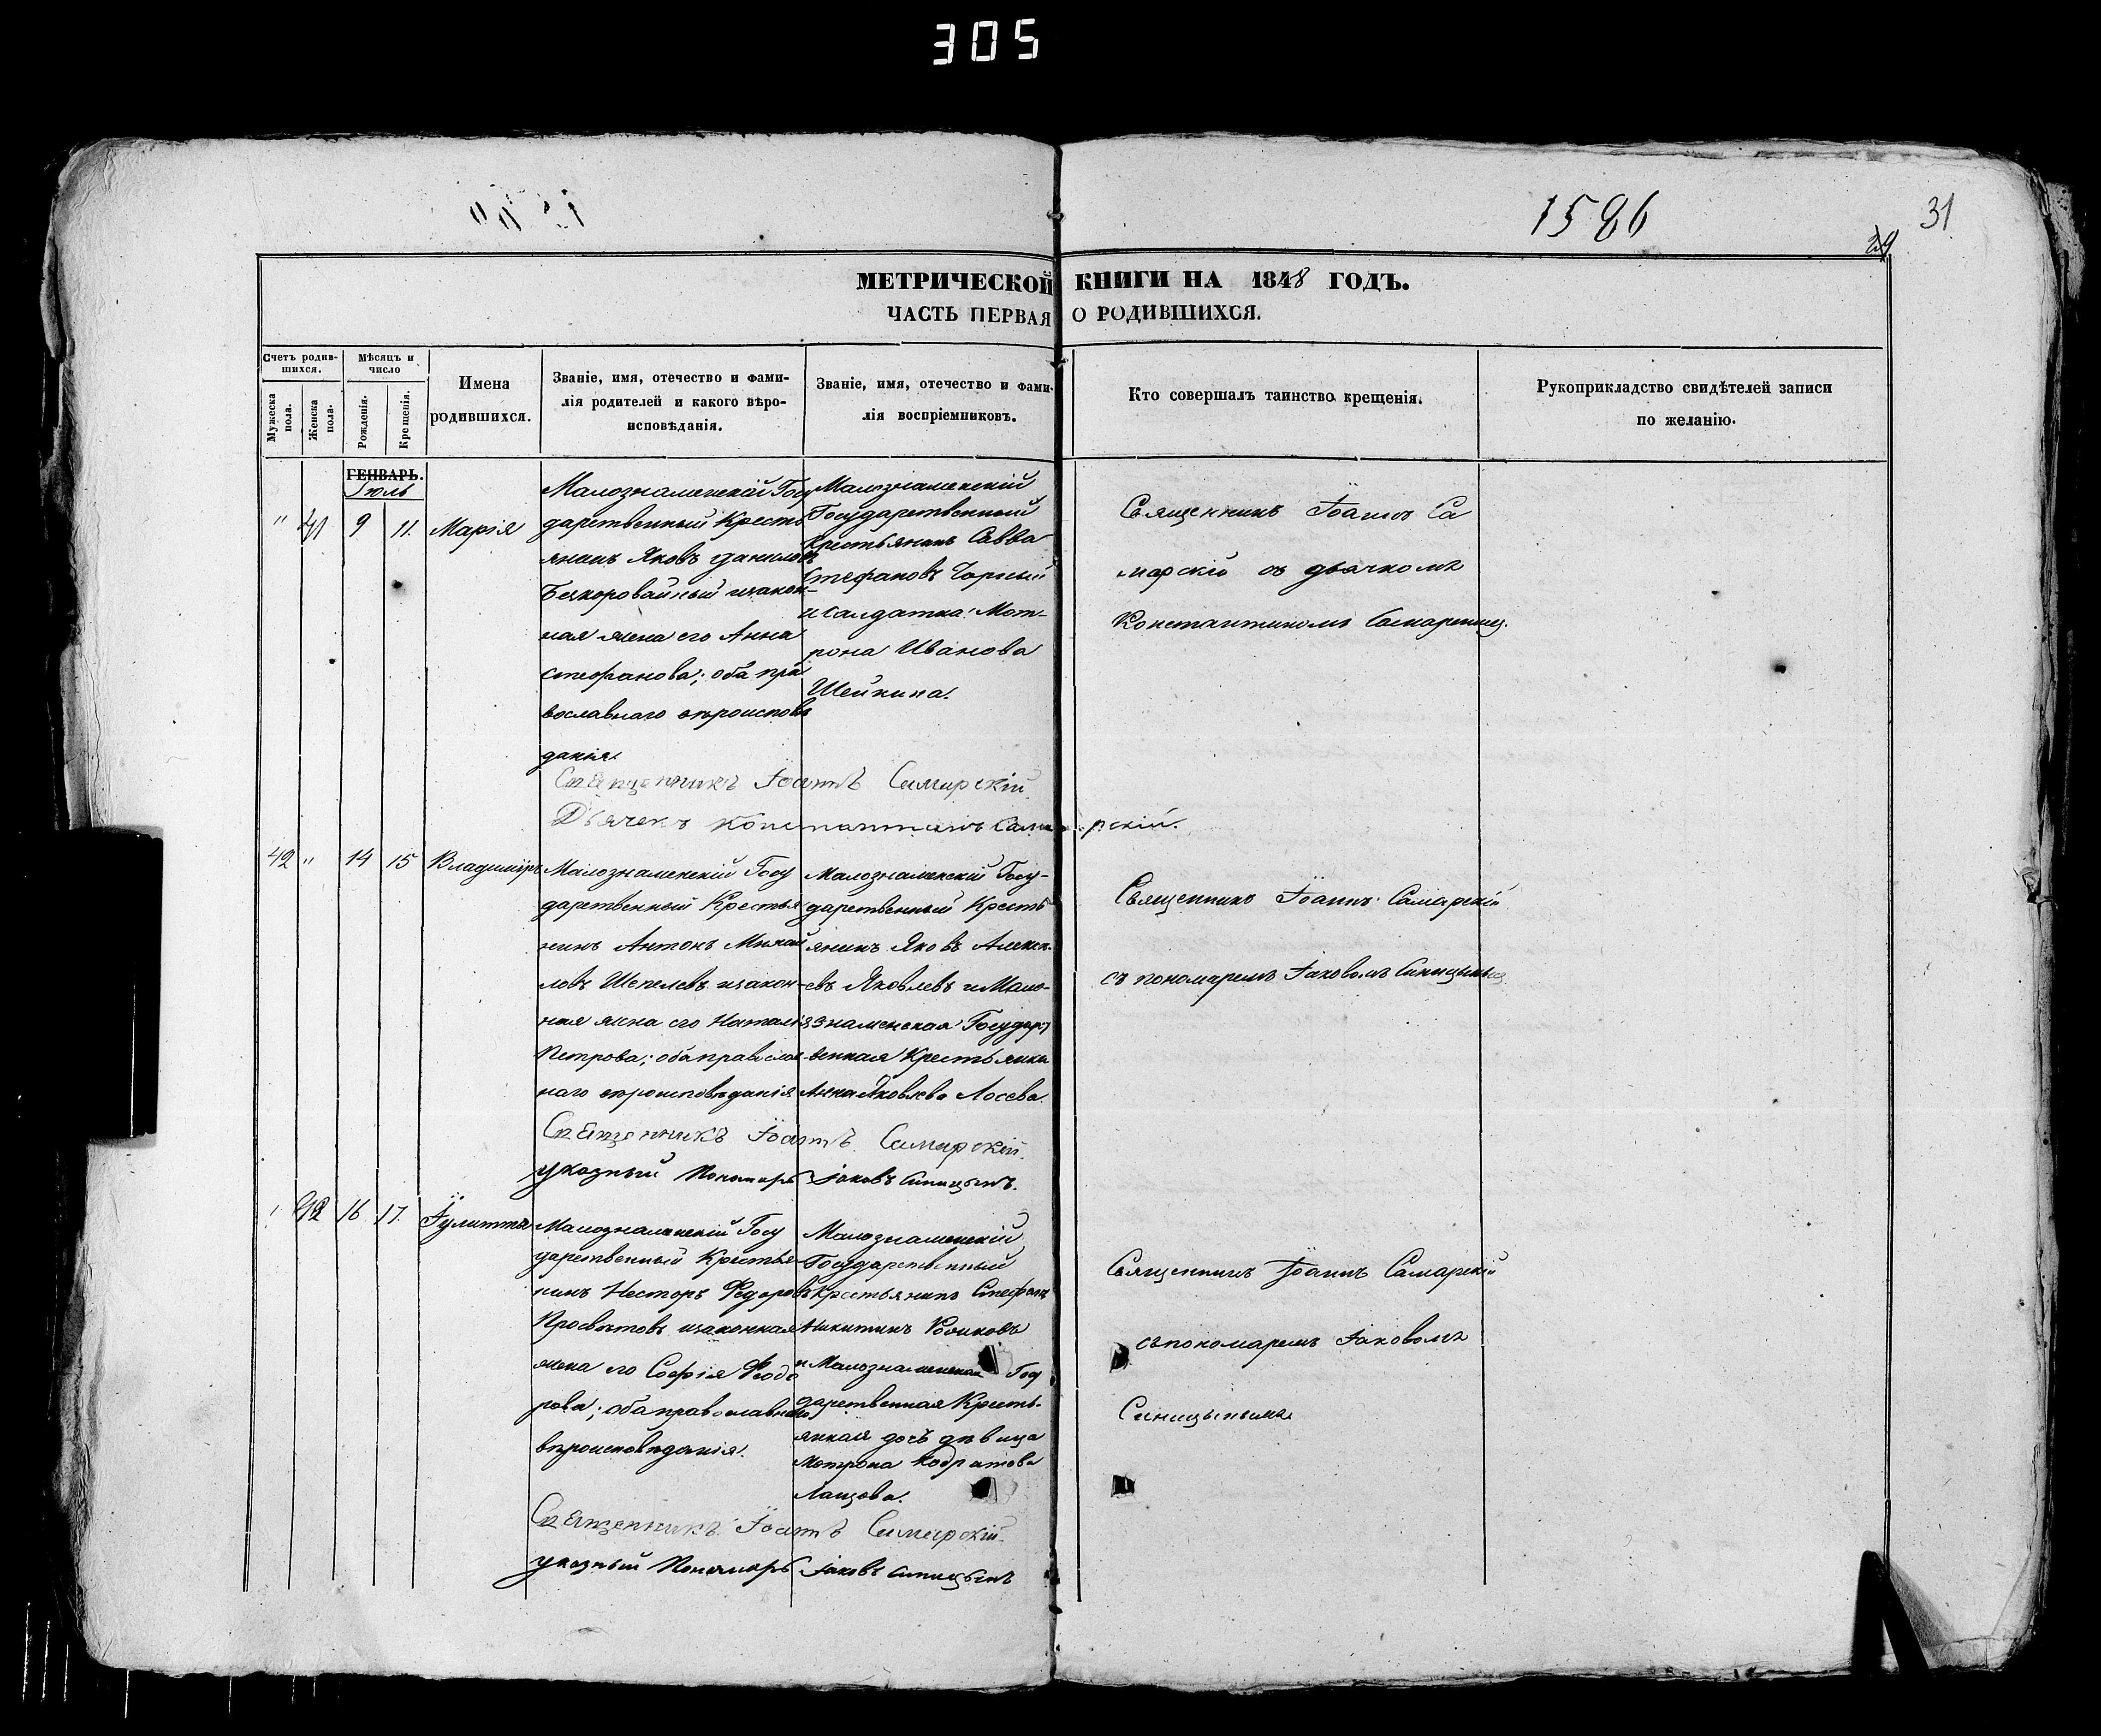 305
1586
31
29
МЕТРИЧЕСКОЙ КНИГИ НА 1848 ГОДЪ.
ЧАСТЬ ПЕРВАЯ О РОДИВШИХСЯ.
Счетъ родив-
шихся.
Мужеска
пола.
Женска
пола.
Мѣсяцъ и
число
Рожденія.
Крещенія.
Имена
родившихся.
Званіе, имя, отечество и фами-
лія родителей и какого вѣро-
исповѣданія.
Званіе, имя, отечество и фами-
лія воспріемниковъ.
Кто совершалъ таинство крещенія.
Рукоприкладство свидѣтелей записи
по желанію.
ГЕНВАРЬ.
Іюль
" 41 9 11. Марія
Малознаменскій Госу
дарственный Кресть
янинъ Яковъ Даниловъ
Безкоровайный изакон-
ная жена его Анна
Стефанова; оба пра
вославнаго вѣроисповѣ
данія.
Малознаменскій
Государственный
Крестьянинъ Савва
Стефановъ Чорный
и Салдатка Мот-
рона Иванова
Шейкина.
Священникъ Іоаннъ Са
марскій съ дьячкомъ
Константиномъ Самарскимъ.
Священникъ Іоаннъ Самарскій
Дьячекъ Константинъ Самарскій.
42 " 14 15 Владиміръ
Малознаменскій Госу
дарственный Крестья
нинъ Антонъ Михай
ловъ Шепелевъ изакон-
ная жена его Наталія
Петрова; оба православ
наго вѣроисповѣданія
Малознаменскій Госу-
дарственный Кресть
янинъ Яковъ Алексѣ-
евъ Яковлевъ и Мало-
знаменская Государст
венная Крестьянка
Анна Яковлева Лосева.
Священникъ Іоаннъ Самарскій
съ пономаремъ Іаковомъ Синицынымъ
Священникъ Іоаннъ Самарскій.
указный Пономарь Іаковъ Синицынъ.
" 42 16 17. Іулитта
Малознаменскій Госу
дарственный Крестья
нинъ Несторъ Федоровъ
Просвѣтовъ изаконная
жена его Софія Феодо
рова; оба православнаго
вѣроисповѣданія.
Малознаменскій
Государственный
Крестьянинъ Стефанъ
Никитинъ
и Малознаменская Госу
дарственная Кресть-
янкая дочь дѣвица
Мотрона Кодратова
Священникъ Іоаннъ Самарскій
съ пономаремъ Іаковомъ
Синицынымъ
Священникъ Іоаннъ Самарскій.
указный Пономарь Іаковъ Синицынъ